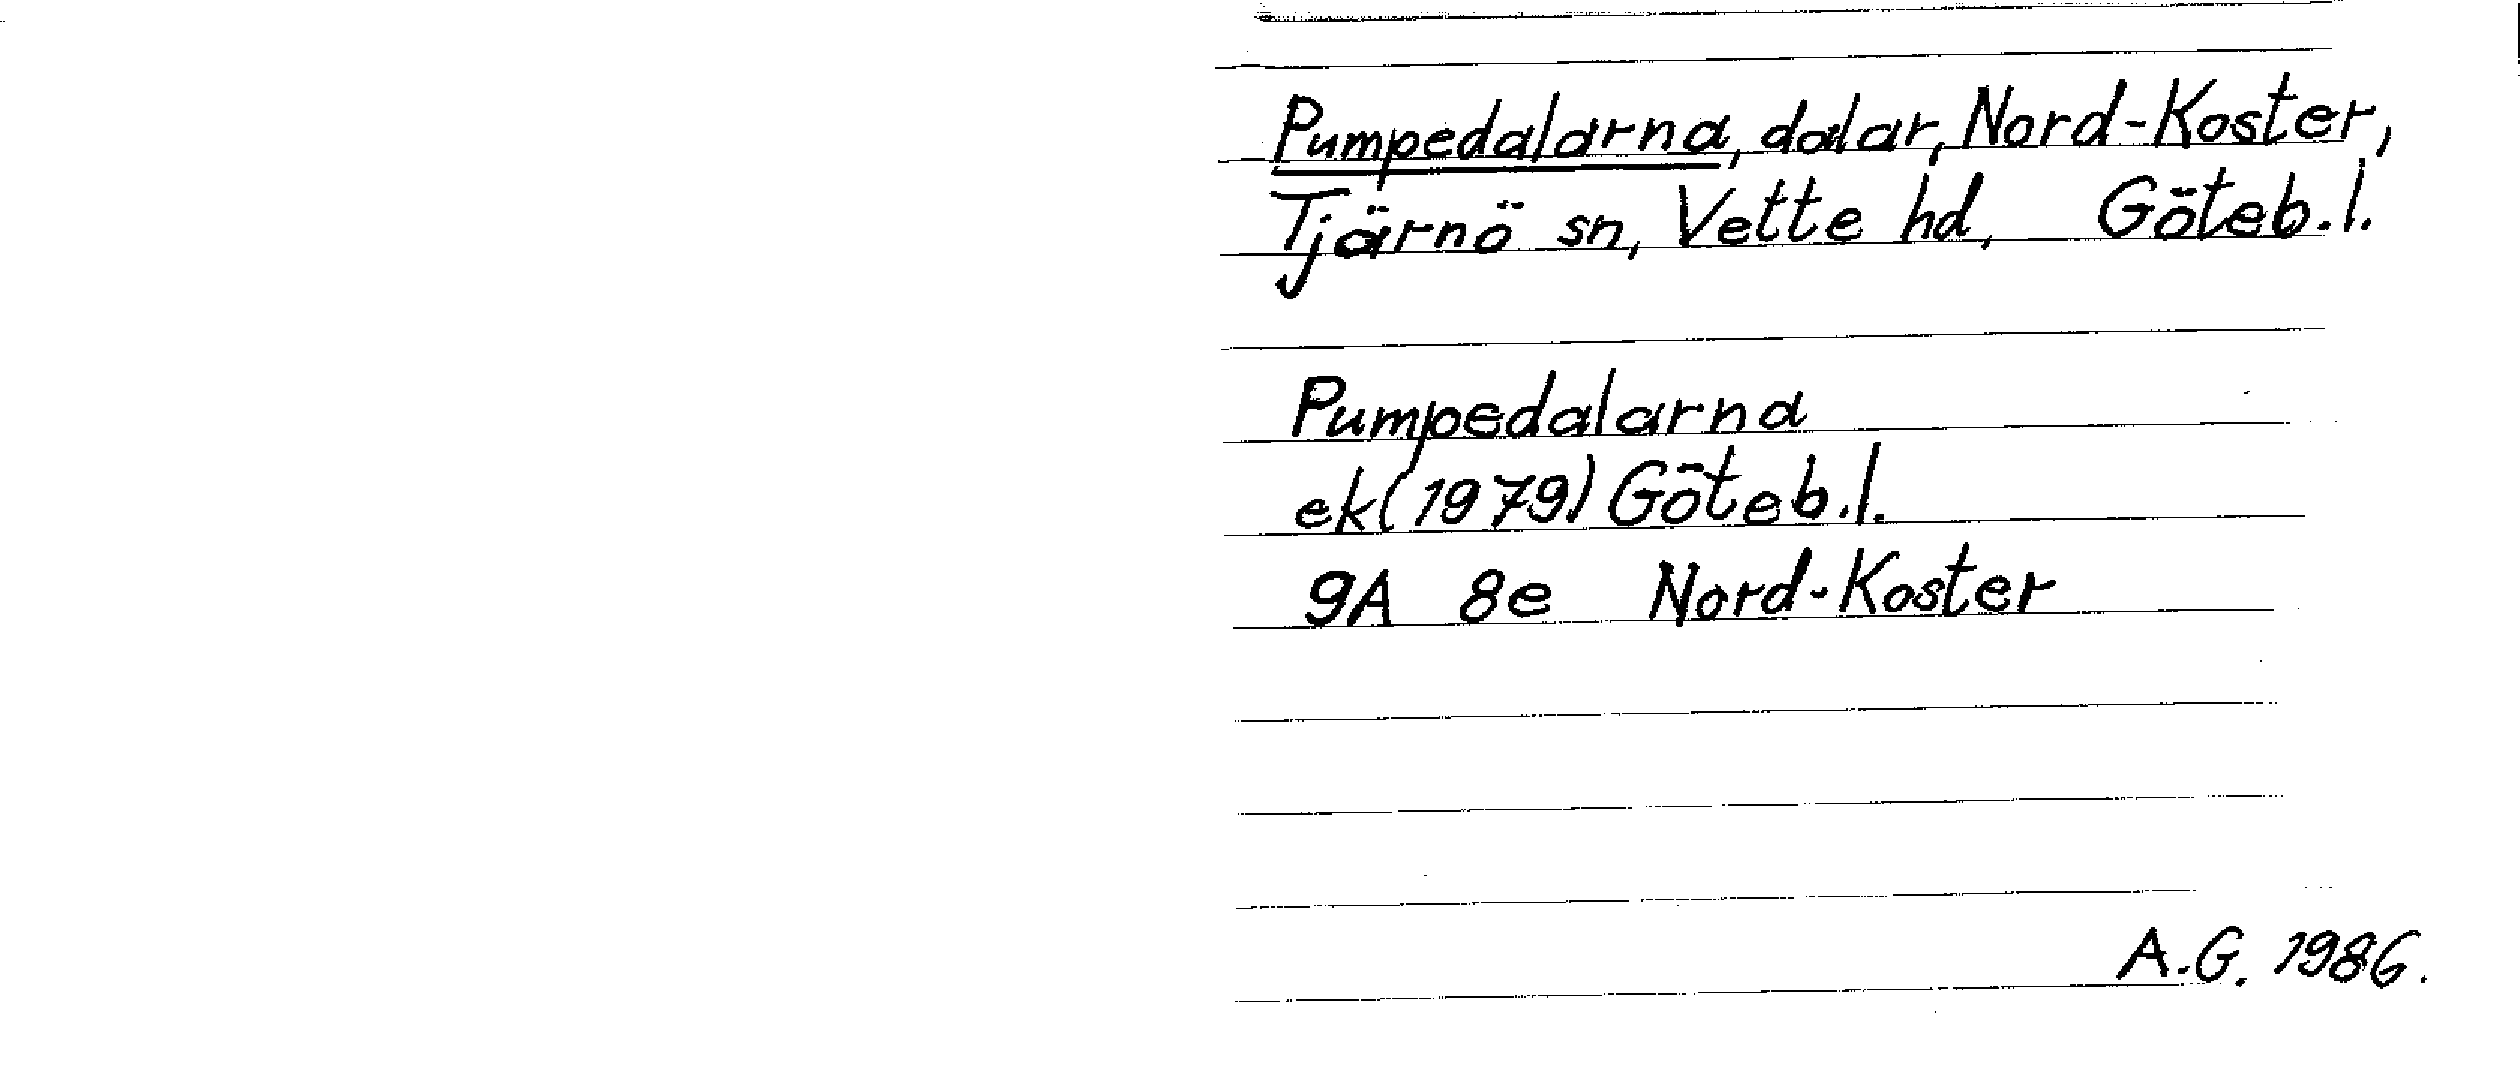 Pumpedalarna, dalar, Nord-Koster,
Tjärnö sn, Vette hd, Göteb.l.
Pumpedalarna
ek(1979) Göteb.l.
9A 8e Nord-Koster
A.G. 1986.